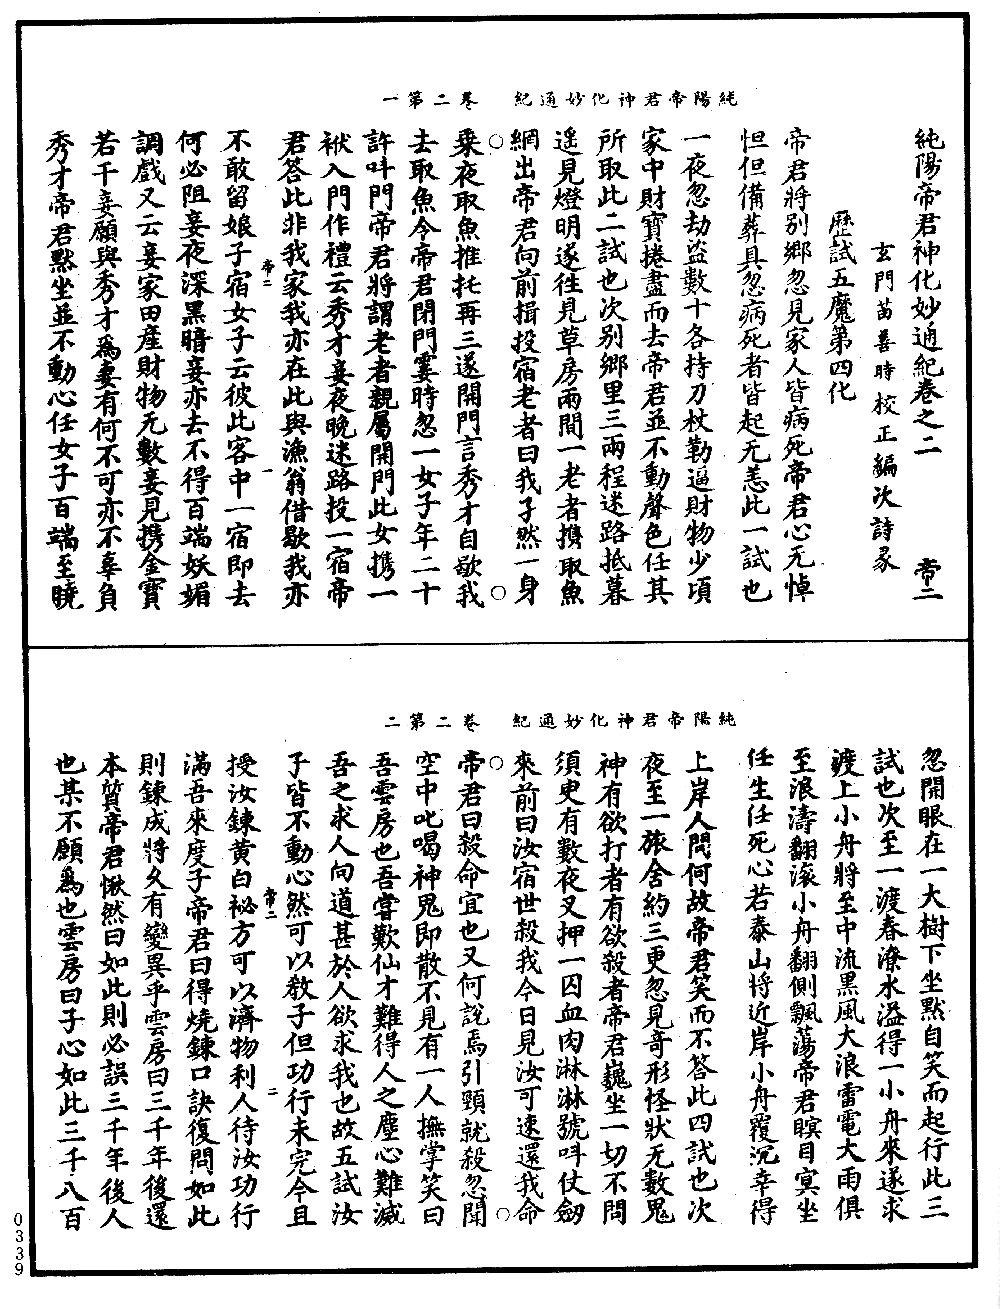 純陽帝君神化妙通紀　卷二第一
純陽帝君神化妙通紀卷之二　帝二
玄門苗善時校正編次詩彖
歷試五魔第四化
帝君將別鄉忽見家人皆病死帝君心无悼
怛但備葬具忽病死者皆起无恙此一試也
一夜忽劫盜數十各持刀杖勒逼財物少頃
家中財寶捲盡而去帝君並不動聲色任其
所取此二試也次別鄉里三兩程迷路抵暮
遥見燈明遂往見草房兩間一老者攜取魚
網出帝君向前揖投宿老者曰我孑然一身
乘夜取魚推托再三遂開門言秀才自歇我
去取魚今帝君閉門霎時忽一女子年二十
許叫門帝君將謂老者親屬開門此女攜一
袱入門作禮云秀才妾夜晚迷路投一宿帝
君答此非我家我亦在此與漁翁借歇我亦
帝二　一
不敢留娘子宿女子云彼此客中一宿即去
何必阻妾夜深黑暗妾亦去不得百端妖媚
調戲又云妾家田產財物无數妾見攜金寶
若干妾願與秀才爲妻有何不可亦不辜負
秀才帝君默坐並不動心任女子百端至曉
純陽帝君神化妙通紀　卷二第二
忽開眼在一大樹下坐默自笑而起行此三
試也次至一渡春潦水溢得一小舟來遂求
渡上小舟將至中流黑風大浪雷電大雨俱
至浪濤翻滚小舟翻側飄蕩帝君瞑目㝠坐
任生任死心若泰山將近岸小舟覆沉幸得
上岸人問何故帝君笑而不答此四試也次
夜至一旅舍約三更忽見奇形怪狀无數鬼
神有欲打者有欲殺者帝君巍坐一切不問
須臾有數夜叉押一囚血肉淋淋號叫仗劒
來前曰汝宿世殺我今日見汝可速還我命
帝君曰殺命宜也又何說焉引頸就殺忽聞
空中叱喝神鬼即散不見有一人撫掌笑曰
吾雲房也吾嘗歎仙才難得人之塵心難滅
吾之求人向道甚於人欲求我也故五試汝
子皆不動心然可以教子但功行未完今且
帝二　二
授汝鍊黄白祕方可以濟物利人待汝功行
滿吾來度子帝君曰得燒鍊口訣復問如此
則鍊成將久有變異乎雲房曰三千年後還
本質帝君愀然曰如此則必誤三千年後人
也某不願爲也雲房曰子心如此三千八百
0339